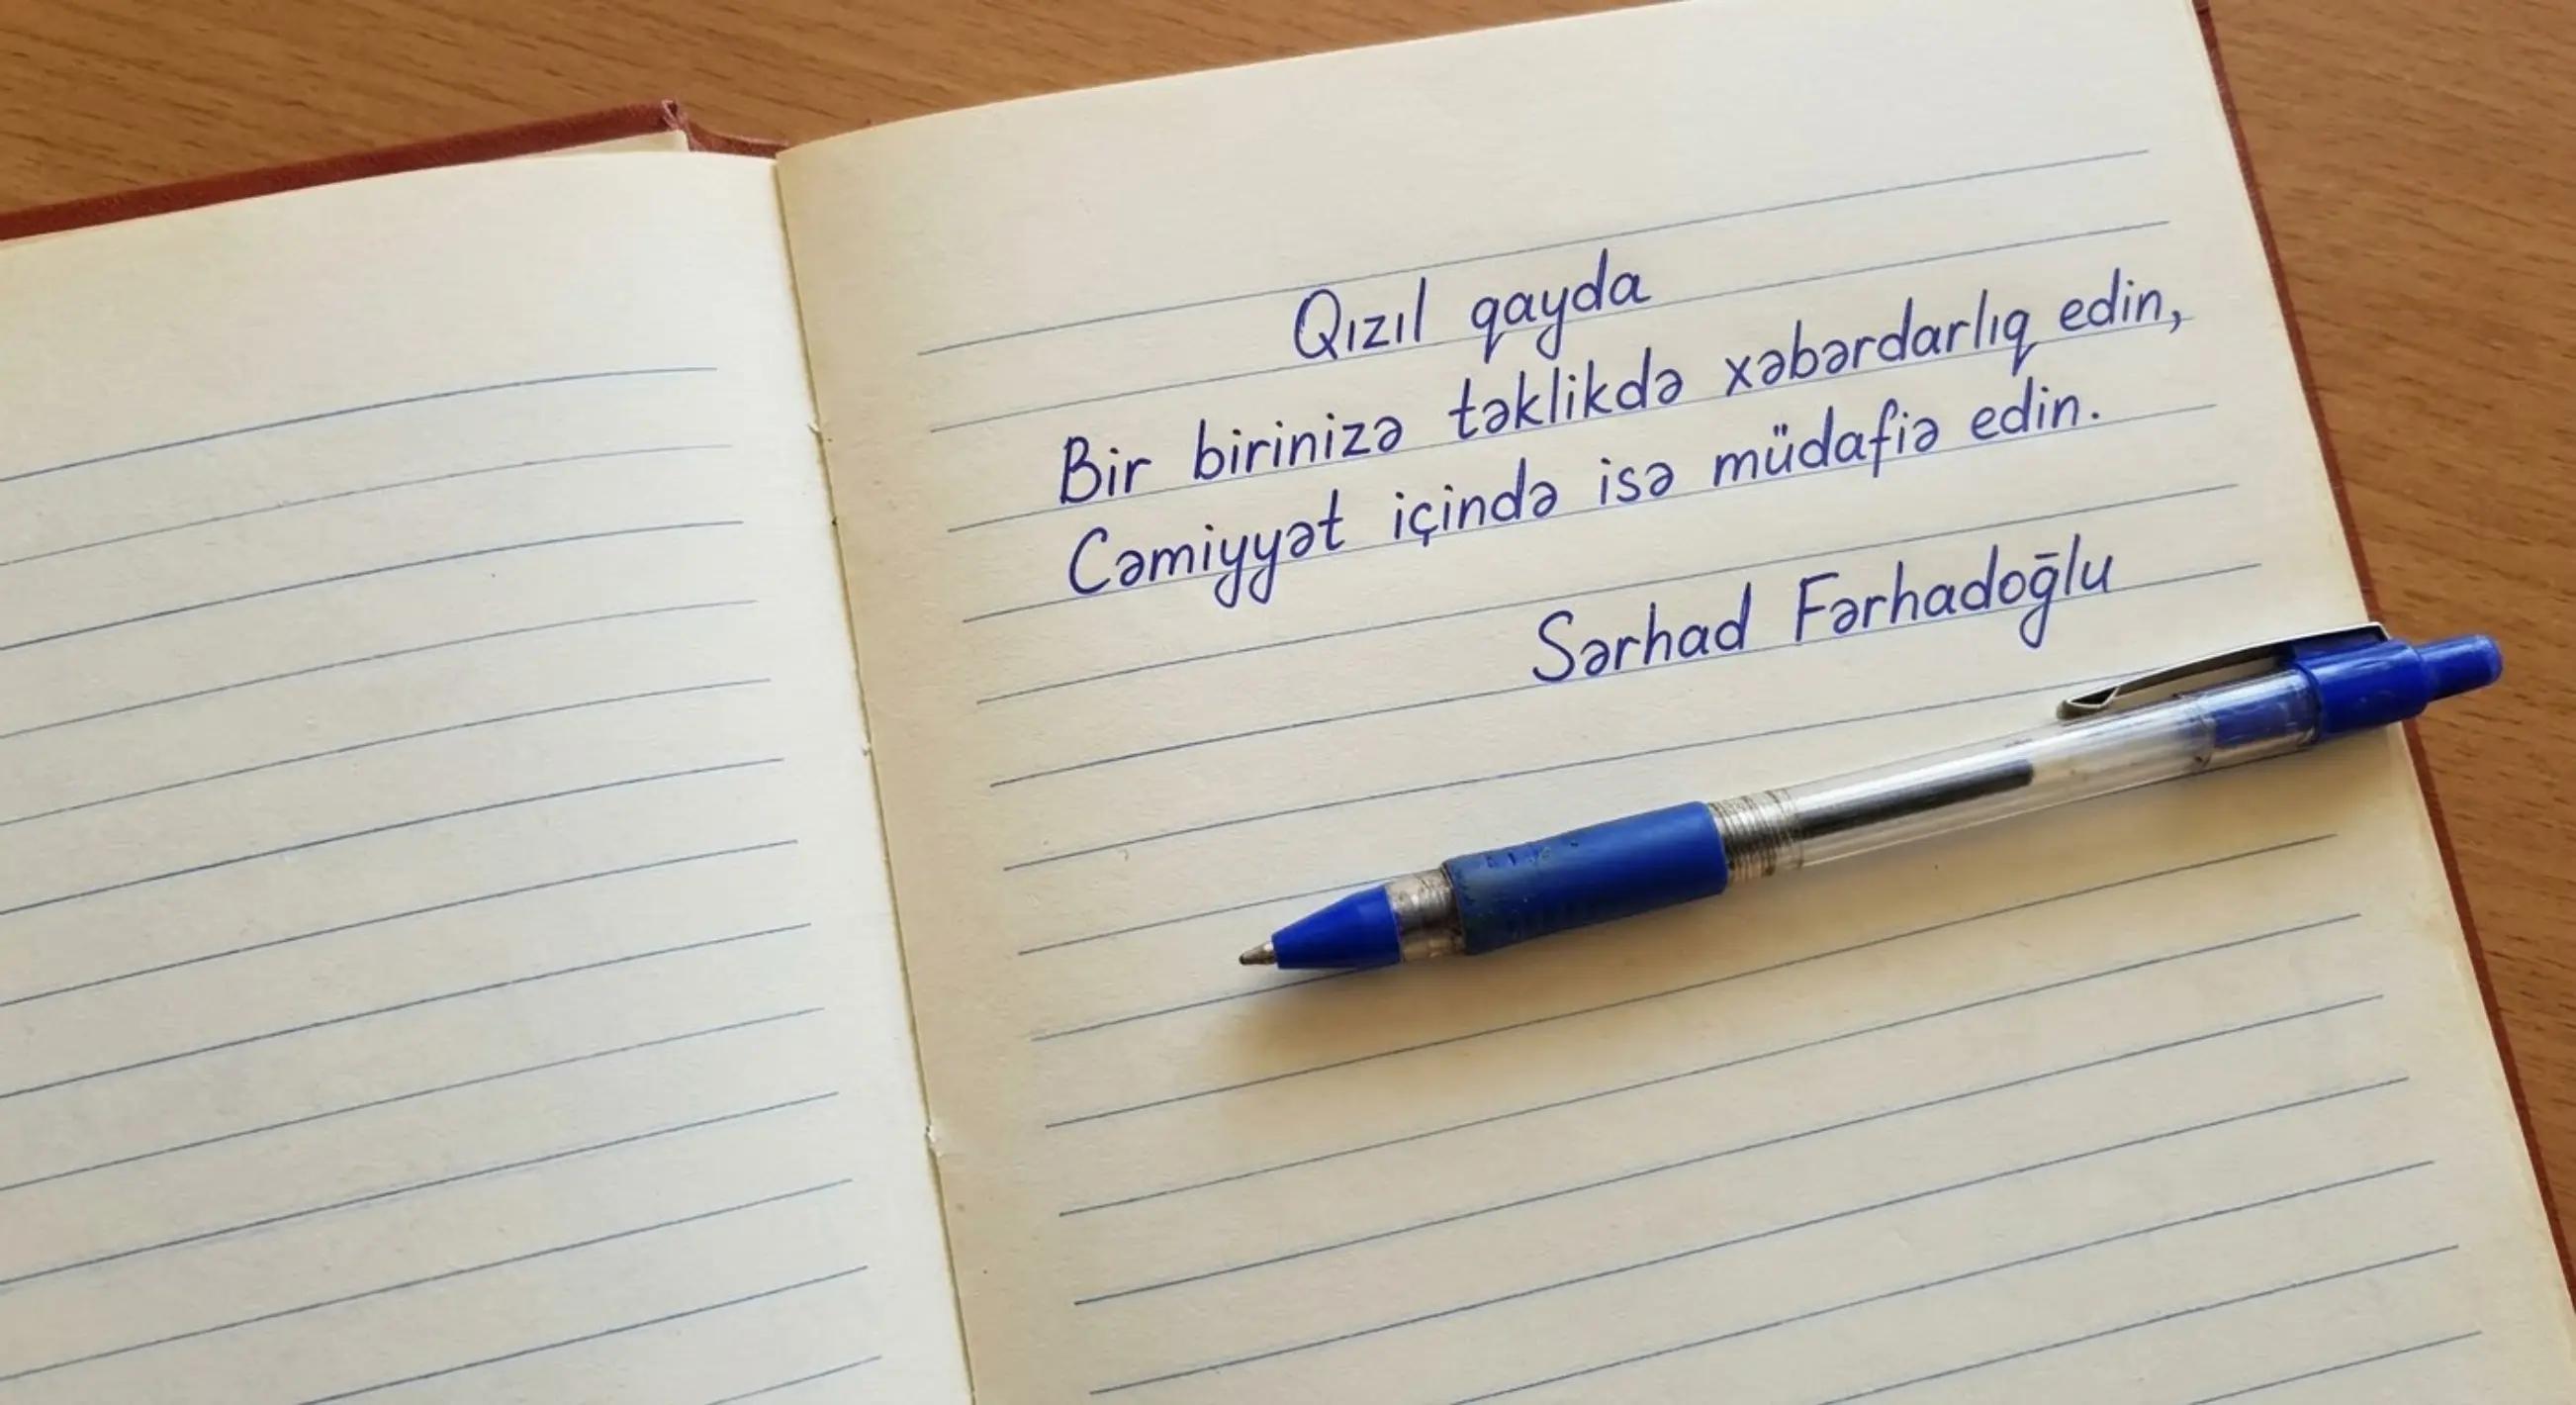 Qızıl qayda
Bir birinizə təklikdə xəbərdarlıq edin,
Cəmiyyət içində isə müdafiə edin.
Sərhad Fərhadoğlu